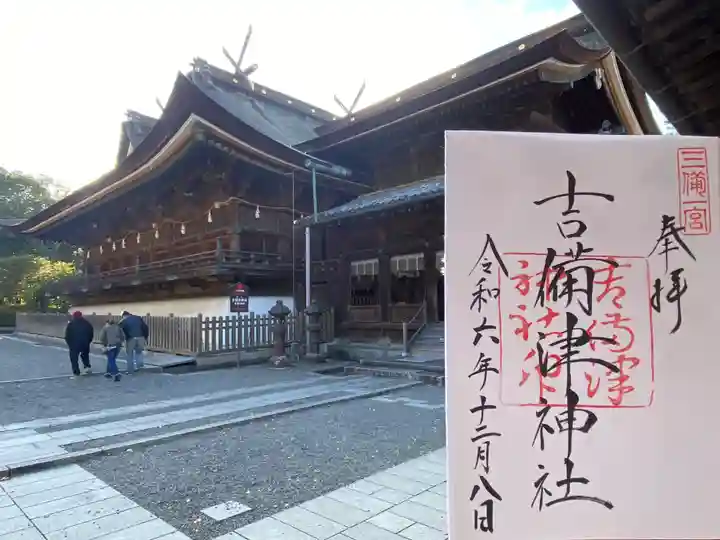 三備一宮
奉拝
吉備津神社
令和六年十二月八日